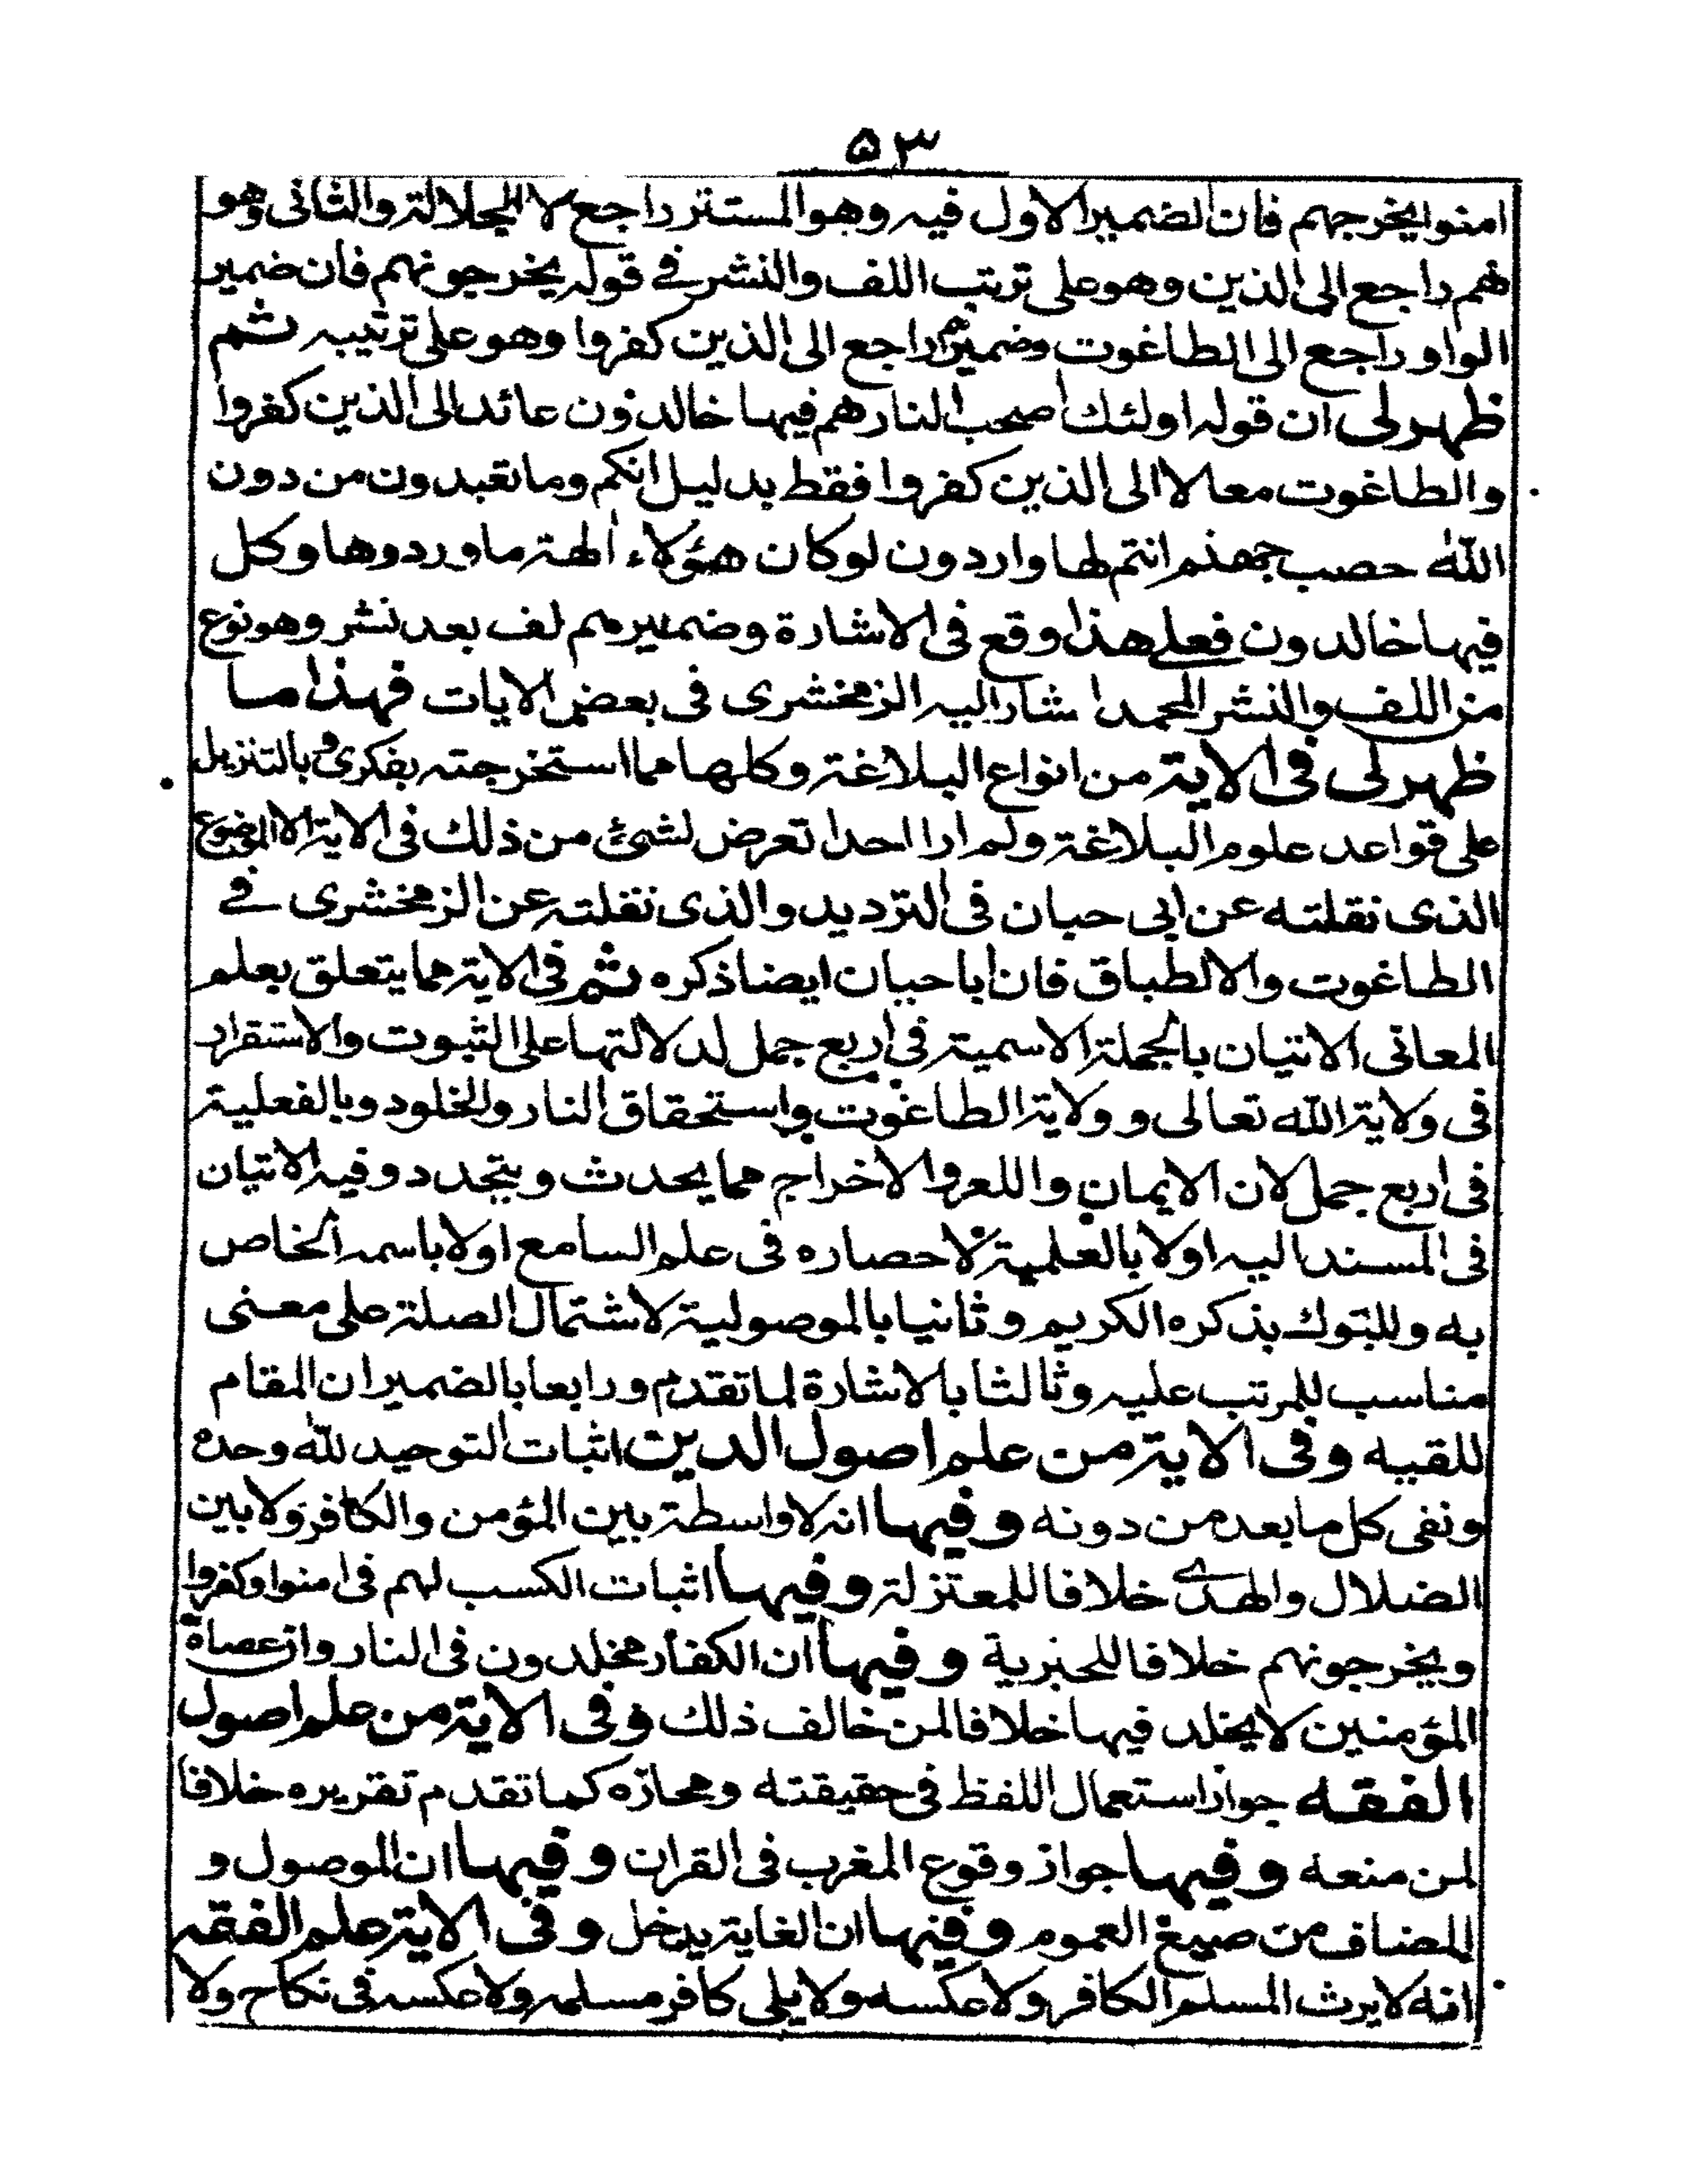 ٥٣
امنوا يخرجهم فان الضمير الاول فيه وهو المستتر راجع لا الجلالة والثانى وهو
هم راجع الى الذين وهو على ترتيب اللف والنشر فى قوله يخرجونهم فان ضمير
الواو راجع الى الطاغوت وضمير هم راجع الى الذين كفروا وهو على ترتيبه ثم
ظهر لى ان قوله اولئك اصحب النار هم فيها خالدون عائد الى الذين كفروا
والطاغوت معا لا الى الذين كفروا فقط بدليل انكم وما تعبدون من دون
الله حصب جهنم انتم لها واردون لو كان هؤلاء الهة ما وردوها وكل
فيها خالدون فعلى هذا وقع فى الاشارة وضمير هم لف بعد نشر وهو نوع
من اللف والنشر اشار اليه الزمخشرى فى بعض الايات فهذا ما
ظهر لى فى الاية من انواع البلاغة وكلها مما استخرجته بفكرى وبالتنزيل
على قواعد علوم البلاغة ولم ار احدا تعرض لشئ من ذلك فى الاية الا الموضوع
الذى نقلته عن ابى حبان فى الترديد والذى نقلته عن الزمخشرى فى
الطاغوت والالطباق فان ابا حبان ايضا ذكره ثم فى الاية مما يتعلق بعلم
المعانى الاتيان بالجملة الاسمية فى اربع جمل لدلالتها على الثبوت والاستقرار
فى ولاية الله تعالى وولاية الطاغوت واستحقاق النار والخلود وبالفعلية
فى اربع جمل لان الايمان و الاخراج مما يحدث ويتجدد وفيه الاتيان
فى المسند اليه اولا بالعلمية لاحصاره فى علم السامع اولا باسمه الخاص
به وللتبرك بذكره الكريم وثانيا بالموصولية لاشتمال الصلة على معنى
مناسب للمرتب عليه وثالثا بالاشارة لما تقدم ورابعا بالضمير ان المقام
للقيبه وفى الاية من علم اصول الدين اثبات التوحيد لله وحده
ونفى كل ما يعد من دونه وفيها انه لا واسطة بين المؤمن والكافر ولا بين
الضلال والهدى خلافا للمعتزلة وفيها اثبات الكسب لهم فى امنوا وكفروا
ويخرجونهم خلافا للجبرية وفيها ان الكفار مخلدون فى النار وان عصاة
المؤمنين لا يخلد فيها خلافا لمن خالف ذلك وفى الاية من علم اصول
الفقه جواز استعمال اللفظ فى حقيقته ومجازه كما تقدم تقريره خلافا
لمن منعه وفيها جواز وقوع المغرب فى القران وفيها ان الموصول و
المضاف من صيغ العموم وفيها ان الغاية يدخل وفى الاية علم الفقه
انه لا يرث المسلم الكافر ولا عكسه ولا يلى كافر مسلمه ولا عكسه فى نكاح ولا